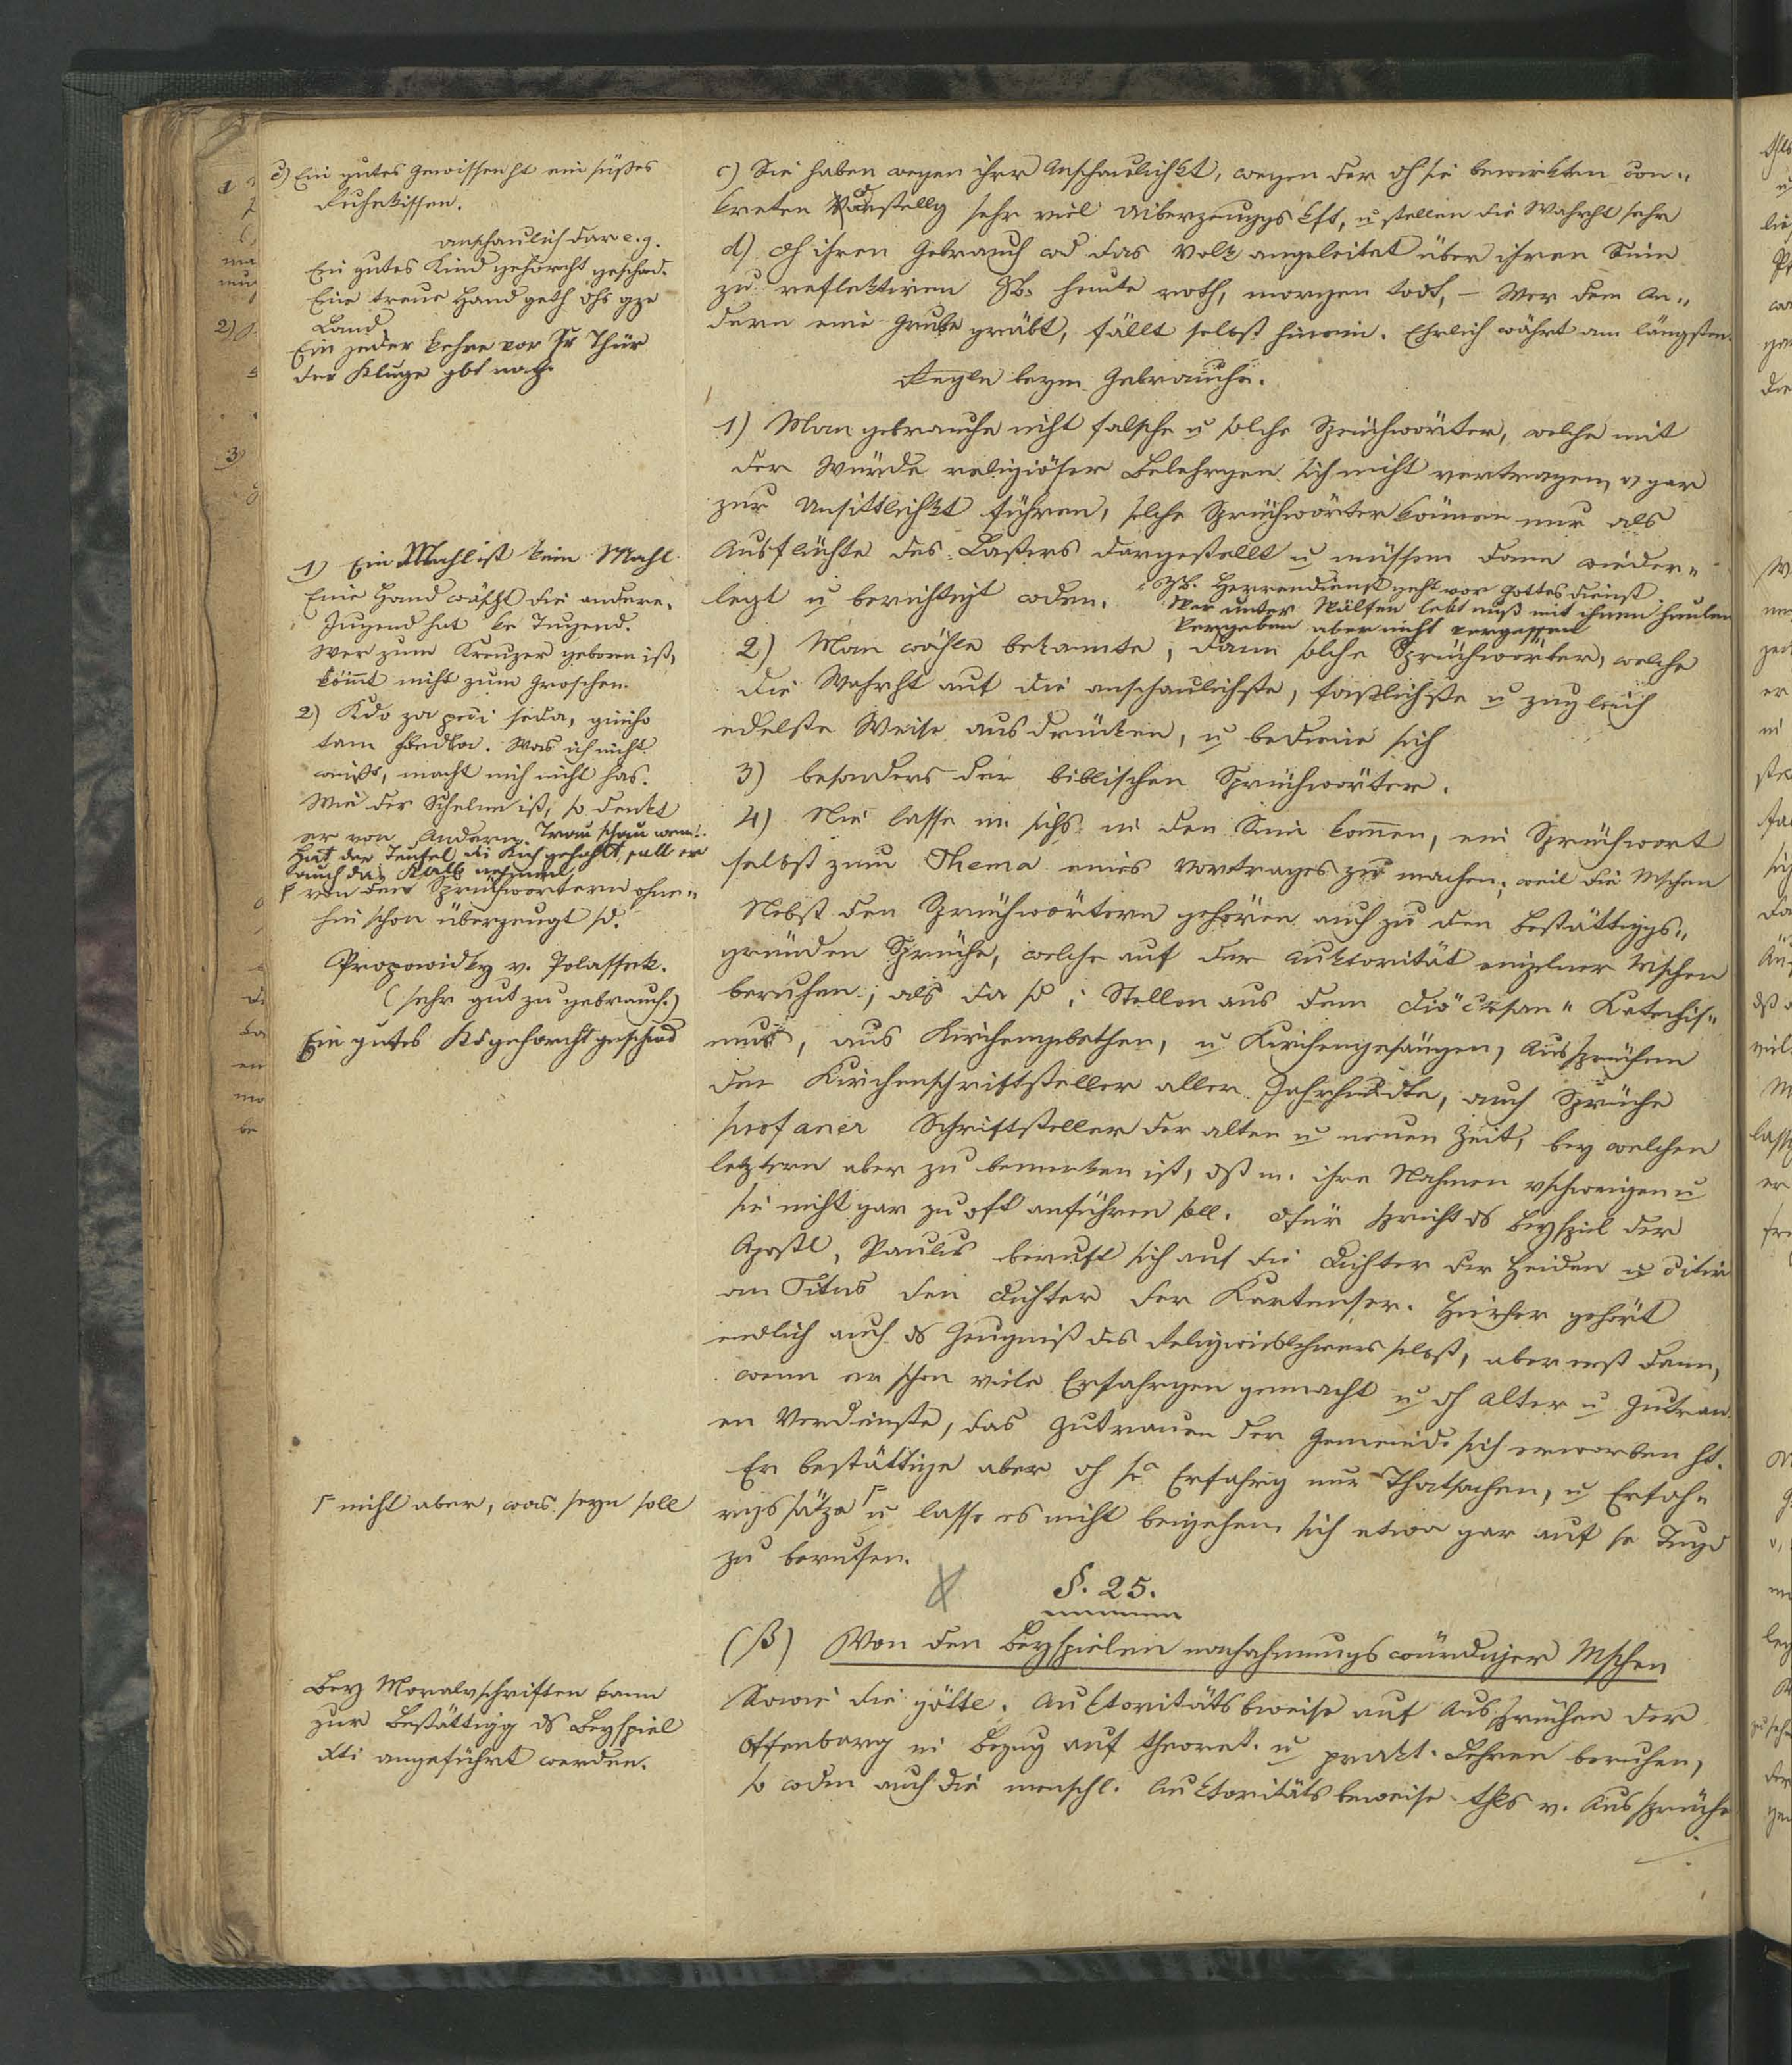 c) Ein gutes Gewissen ht ein süßes
Ruhekissen.
anschaulich dar e.g.
Ein gutes Kind gehorcht geschwd.
Eine treue Hand geht dhs gze
Land
Ein jeder kehre vor sr Thür
der Kluge gbt nach.
1) Ein Mahl ist kein Mahl
Eine Hand wäscht die andere.
Jugend hat ke Tugend.
Wer zum Kreuzer geboren ist,
kömmt nicht zum Groschen.
2) Kdo za pecí sedá,
tam hledka. Was ich nicht
weiß, macht mich nicht has.
Wie der Schelm ist, so denkt
er von Andern. Trau schau wem!
Hat der Teufel die Kuh geholt, soll er
auch das Kalb nehmen
von den Sprüchwörtern ohne-
hin schon überzeugt sd.
Propowidky v. Polassek.
(sehr gut zu gebrauch.)
Ein gutes Kd gehorcht geschwd
nicht aber, was seyn soll
Bey Moralvschriften kann
zur Bestättigg ds Beyspiel
Xti angeführt werden.
c) Sie haben wegen ihrer Anschaulichkt, wegen der dh sie bewirkten con-
kreten Vorstellg sehr viel Uiberzeuggskft, u stellen die Wahrht sehr
d) Dh ihren Gebrauch wd das Volk angeleitet über ihren Sinn
zu reflektiren ZB. heute roth, morgen todt, – Wer dem An-
dern eine Grube gräbt, fällt selbst hinein. Ehrlich währt am längsten.
Regeln beym Gebrauche.
1) Man gebrauche nicht falsche u solche Sprüchwörter, welche mit
der Würde religiöser Belehrgen sich nicht vertragen, o gar
zur Unsittlichkt führen, solche Sprüchwörter können nur als
Ausflüchte des Lasters dargestellt u müssen dann wieder-
legt u berichtigt wden. ZB. Herrendienst geht vor Gottesdienst
Wer unter Wölfen lebt muß mit ihnen heulen
Vergeben aber nicht vergessen
2) Man wähle bekannte, dann solche Sprüchwörter, welche
die Wahrht auf die anschaulichste, faßlichste u zugleich
edelste Weise ausdrücken, u bediene sich
3) besonders der biblischen Sprüchwörter.
4) Nie lasse m. sichs in den Sinn kommen, ein Sprüchwort
selbst zum Thema eines Vortrages zu machen, weil die Mschen
Nebst den Sprüchwörtern gehören auch zu den Bestättiggs-
gründen Sprüche, welche auf der Auktorität einzelner Mschen
beruhen; als da sd: Stellen aus dem Diöcesan-Katechis-
mus, aus Kirchengebethen, u Kirchengesängen, Aussprüchen
der Kirchenschriftsteller aller Jahrhundte, auch Sprüche
profaner Schriftsteller der alten u neuen Zeit, bey welchen
letztern aber zu bemerken ist, dß m. ihre Nahmen vschweigen u
sie nicht gar zu oft anführen soll. Dfür spricht ds Beyspiel der
Apostl, Paulus beruft sich auf die Dichter der Heiden u citir
an Titus den Dichter der Kretenser. Hieher gehört
endlich auch ds Zeugniß des Religionslehrers selbst, aber erst dann,
wenn er schon viele Erfahrgen gemacht u dh Alter u
en Verdienste, das Zutrauen der Gemeinde sich erworben ht.
Er bestättige aber dh se Erfahrg nur Thatsachen, u Erfah-
rgssätze u lasse es nicht beygehen sich etwa gar auf se Tugd
zu berufen.
§. 25.
(β) Von den Beyspielen nachahmungswürdiger Mschen
Sowie die göttl. Auktoritätsbweise auf Aussprüchen der
Offenbarg in Bezug auf theoret. u prakt. Lehren beruhen,
so wden auch die menschl. Auktoritätsbeweise thls v. Aussprüche